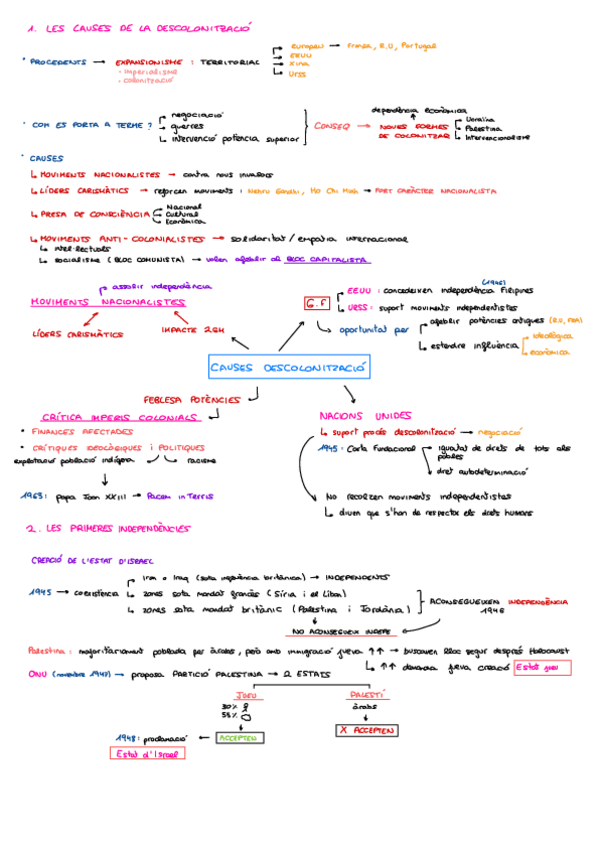 1. LES CAUSES DE LA DESCOLONITZACIÓ
· PROCEDENTS → EXPANSIONISME : TERRITORIAL
· imperialisme
· colonització
europeu → França, R.U, Portugal
EEUU
Xina
URSS
· COM ES PORTA A TERME?
negociació
guerres
intervenció potència superior
CONSEQ → NOVES FORMES DE COLONITZAR
dependència econòmica
Ucraïna
Palestina
Intervencionisme
· CAUSES
↳ MOVIMENTS NACIONALISTES → contra nous invasors
↳ LÍDERS CARISMÀTICS → reforcen moviments : Nehru Gandhi, Ho Chi Minh → FORT CARÀCTER NACIONALISTA
↳ PRESA DE CONSCIÈNCIA
Nacional
Cultural
Econòmica
↳ MOVIMENTS ANTI-COLONIALISTES → solidaritat / empatia internacional
↳ intel·lectuals
↳ socialisme (BLOC COMUNISTA) → volen afeblir al BLOC CAPITALISTA
assolir independència
MOVIMENTS NACIONALISTES
LÍDERS CARISMÀTICS
IMPACTE 2GM
G.F
(1946)
EEUU : concedeixen independència Filipines
URSS : suport moviments independentistes
oportunitat per
afeblir potències antigues (R.U, FRA)
estendre influència
ideològica
econòmica
CAUSES DESCOLONITZACIÓ
FEBLESA POTÈNCIES
CRÍTICA IMPERIS COLONIALS
· FINANCES AFECTADES
· CRÍTIQUES IDEOLÒGIQUES i POLITIQUES
explotació població indígena
racisme
1963: papa Joan XXIII → Pacem in Terris
NACIONS UNIDES
↳ suport procés descolonització → negociació
1945: Carta Fundacional
igualtat de drets de tots els pobles
dret autodeterminació
No recolzen moviments independentistes
↳ diuen que s'han de respectar els drets humans
2. LES PRIMERES INDEPENDÈNCIES
CREACIÓ DE L'ESTAT D'ISRAEL
1945 → coexistència
Iran o Iraq (sota influència britànica) → INDEPENDENTS
zones sota mandat francès (Síria i el Líban)
zones sota mandat britànic (Palestina i Jordània)
ACONSEGUEIXEN INDEPENDÈNCIA 1946
NO ACONSEGUEIX INDEPE
Palestina : majoritàriament poblada per àrabs, però amb immigració jueva ↑↑ → buscaven lloc segur després Holocaust
↳ ↑↑ demanda jueva creació Estat jueu
ONU (novembre 1947) → proposa PARTICIÓ PALESTINA → 2 ESTATS
JUEU
30%
55%
ACCEPTEN
PALESTÍ
àrabs
X ACCEPTEN
1948: proclamació
Estat d'Israel